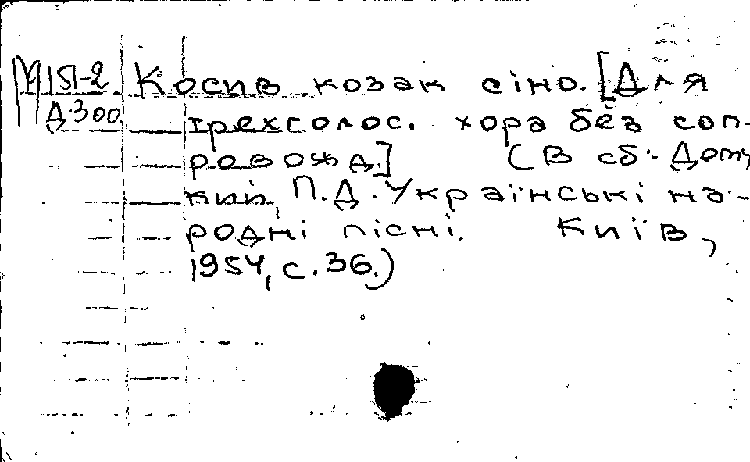 М151-2 Косив козак сіно. [Для
Д300 трехголос. хора без соп-
ровожд.] (В сб. Доць-
кий, П.Д. Українські на-
родні пісні. Київ,
1954, с. 36.)